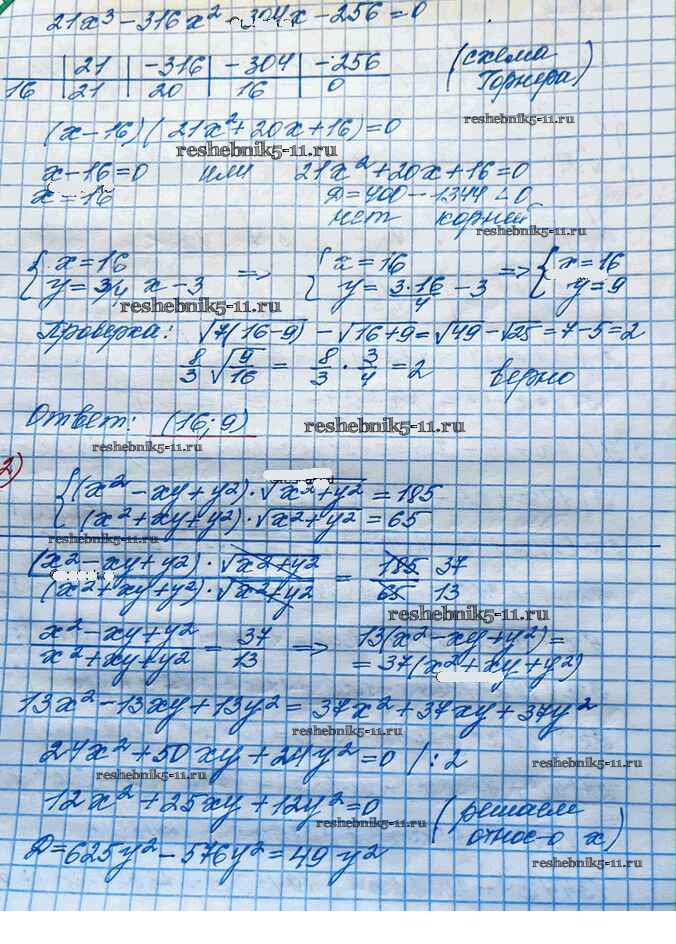 21x³ - 316x² - 304x - 256 = 0
21 | -316 | -304 | -256 (схема
16 | 21 | 20 | 16 | 0 Горнера)
(x-16)(21x²+20x+16)=0
reshebnik5-11.ru
x-16=0 или 21x²+20x+16=0
x=16 Д=400-1344<0
нет корней
reshebnik5-11.ru
{x=16 => {x=16 => {x=16
y=3/4 x-3 y=3·16/4 -3 y=9
reshebnik5-11.ru
Проверка: √7(16-9) - √16+9 = √49 - √25 = 7-5=2
8/3 √9/16 = 8/3 · 3/4 = 2 верно
Ответ: (16; 9) reshebnik5-11.ru
reshebnik5-11.ru
2)
{(x²-xy+y²)·√x²+y² = 185
(x²+xy+y²)·√x²+y² = 65
reshebnik5-11.ru
(x²-xy+y²)·√x²+y² = 185 37
(x²+xy+y²)·√x²+y² 65 13
reshebnik5-11.ru
x²-xy+y² = 37 => 13(x²-xy+y²)=
x²+xy+y² 13 =37(x²+xy+y²)
13x²-13xy+13y²=37x²+37xy+37y²
reshebnik5-11.ru
24x²+50xy+24y²=0 /:2
reshebnik5-11.ru reshebnik5-11.ru
12x²+25xy+12y²=0 (решаем
reshebnik5-11.ru
относ-о x)
Д=625y²-576y²=49y²
reshebnik5-11.ru
reshebnik5-11.ru